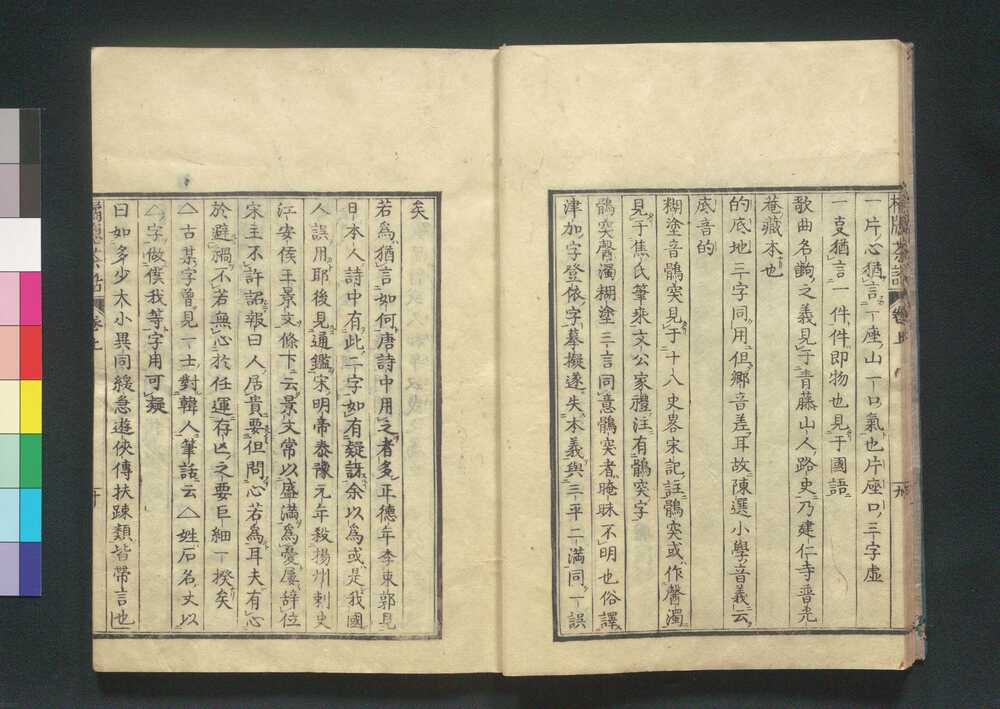 橘牎茶話 卷上 九
一片心猶言一座山一口氣也片座口三字虛
一支猶言一件件即物也見于國語
歌曲名齣之義見于青藤山人路史乃建仁寺晋光
菴藏本也
的底地三字同用但鄉音差耳故陳選小學音義云
底音的
糊塗音鶻突見于十八史畧宋記註鶻突或作䐁濁
見于焦氏筆乘文公家禮注有鶻突字
鶻突䐁濁糊塗三言同意鶻突者晻昧不明也俗譯
津加字登依字摹擬遂失本義與三平二滿同一誤
矣
若為猶言如何唐詩中用之者多正德年李東郭見
日本人詩中有此二字如有疑訝余以為或是我國
人誤用耶後見通鑑宋明帝泰豫元年殺揚州刺史
江安侯王景文條下云景文常以盛滿為憂屢辭位
宋主不許詔報曰人居貴要但問心若為耳夫有心
於避禍不若無心於任運存亡之要巨細一揆矣
△古某字曾見一士對韓人筆話云△姓石名丈以
△字做僕我等字用可疑
曰如多少大小異同緩急遊俠傳扶疎類皆帶言也
橘牎茶話 卷上 十